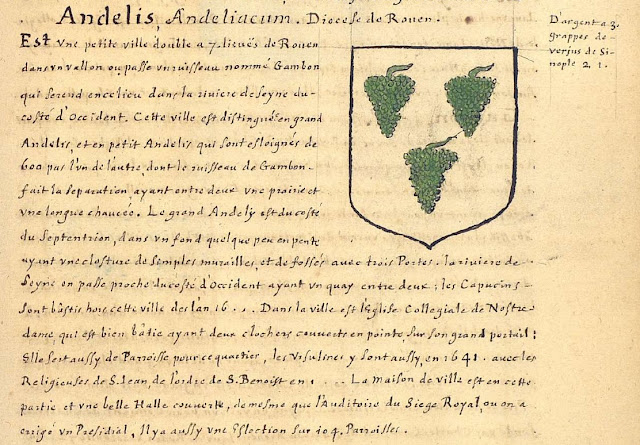 Andelis, Andeliacum. Diocese de Rouen.
Est vne petite ville double a 7. lieuës de Rouen
dans vn vallon ou passe vn ruisseau nommé Gambon
qui se rend en ce lieu dans la riviere de Seyne du
costé d'Occident. Cette ville est distinguée en grand
Andelis, et en petit Andelis qui sont esloignés de
600 pas l'vn de l'autre, dont le ruisseau de Gambon
fait la separation, ayant entre deux vne prairie et
vne longue chaucée. Le grand Andely est du costé
du Septentrion, dans vn fond quelque peu en pente
ayant vne closture de semples murailles, et de fossés avec trois Portes. la riviere de
Seyne en passe proche du costé d'Occident ayant vn quay entre deux; les Capucins
sont bâstis hors cette ville des l'an 16 . . . Dans la ville est l'Eglise Collegiale de Nostre
dame, qui est bien bâtie ayant deux clochers couverts en pointe, sur son grand portail:
Elle sert aussy de Parroisse pour ce quartier, les Vrsulines y sont aussy, en 1641. avec les
Religieuses de S. Jean, de l'ordre de S. Benoist en 1 . . . La maison de ville est en cette
partie et vne belle Halle couverte, de mesme que l'Auditoire du Siege Royal, ou on a
errigé vn Presidial, Il y a aussy vne Eslection sur 104. Parroisses.
D'argent a 3.
grappes de
verjus de Si-
nople 2. 1.